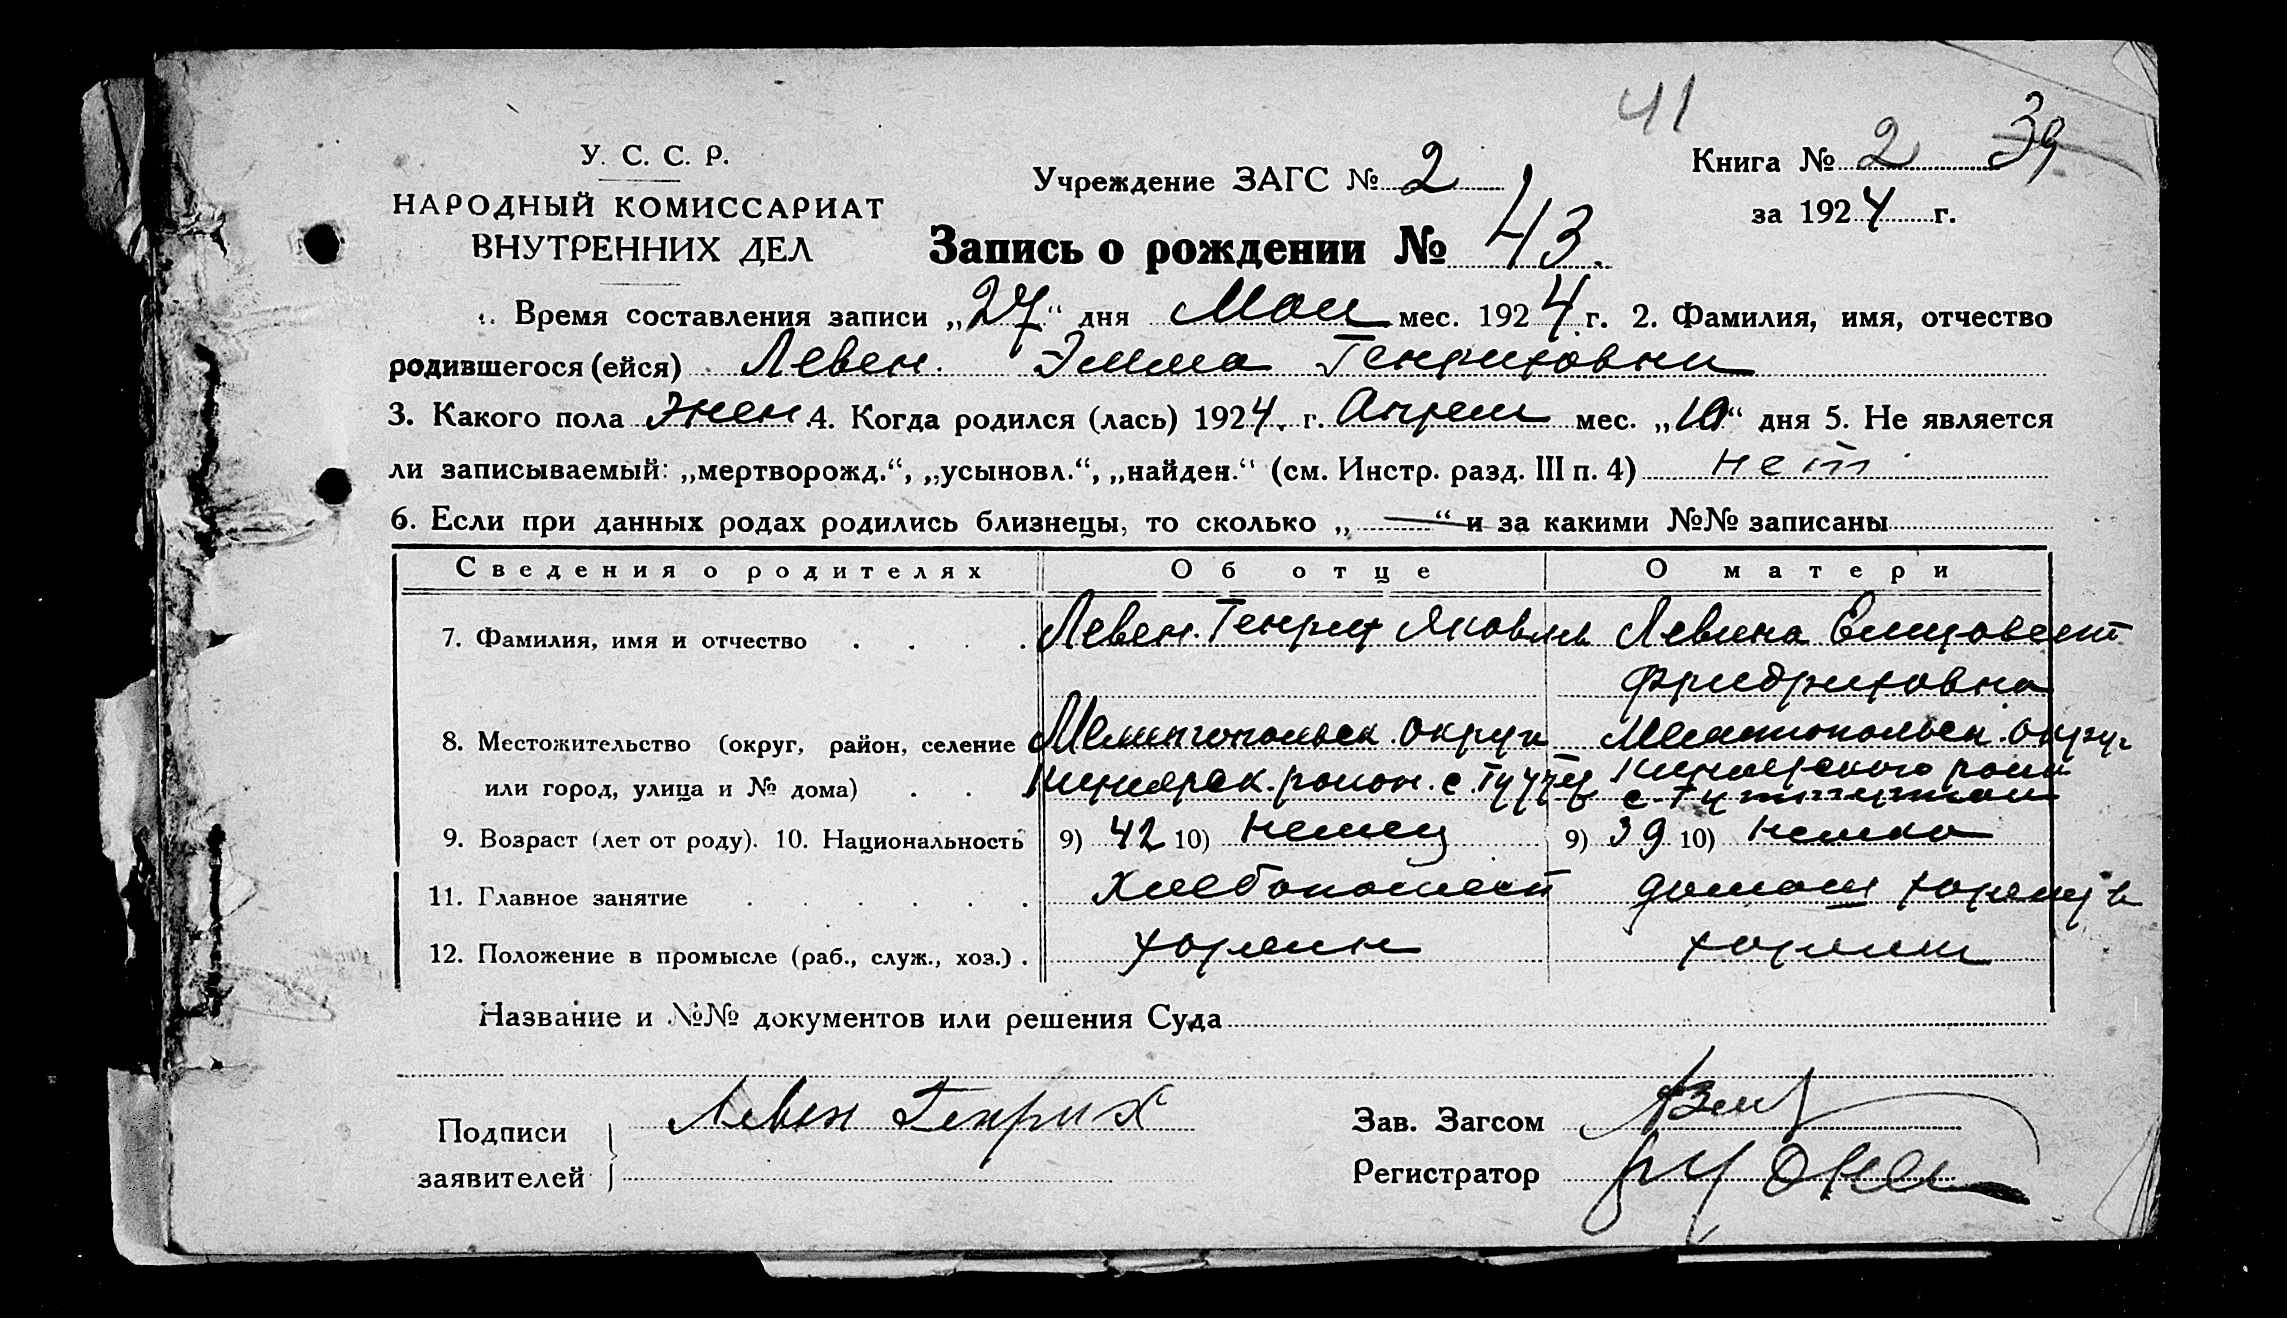 41
У. С. С. Р.
НАРОДНЫЙ КОМИССАРИАТ
ВНУТРЕННИХ ДЕЛ
Учреждение ЗАГС № 2
Книга № 2 39
за 1924 г.
Запись о рождении № 43.
1. Время составления записи „27“ дня Мая мес. 1924 г. 2. Фамилия, имя, отчество
родившегося (ейся) Левен. Эмма Генриховна
3. Какого пола жен 4. Когда родился (лась) 1924. г. Апрель мес. „10“ дня 5. Не является
ли записываемый: „мертворожд.“, „усыновл.“, „найден.“ (см. Инстр. разд. III п. 4) нет
6. Если при данных родах родились близнецы, то сколько „—“ и за какими №№ записаны
Сведения о родителях Об отце О матери
7. Фамилия, имя и отчество Левен. Генрих Яковль Левина Елизавет
Фридриховна
8. Местожительство (округ, район, селение Мелитопольск. округ Мелитопольск. округ
или город, улица и № дома) район. с.
9. Возраст (лет от роду). 10. Национальность 9) 42 10) немец 9) 39 10) немка
11. Главное занятие Хлебопашест домаш
12. Положение в промысле (раб., служ., хоз.)
Название и №№ документов или решения Суда
Подписи
заявителей
Левен Генрих
Зав. Загсом
Регистратор